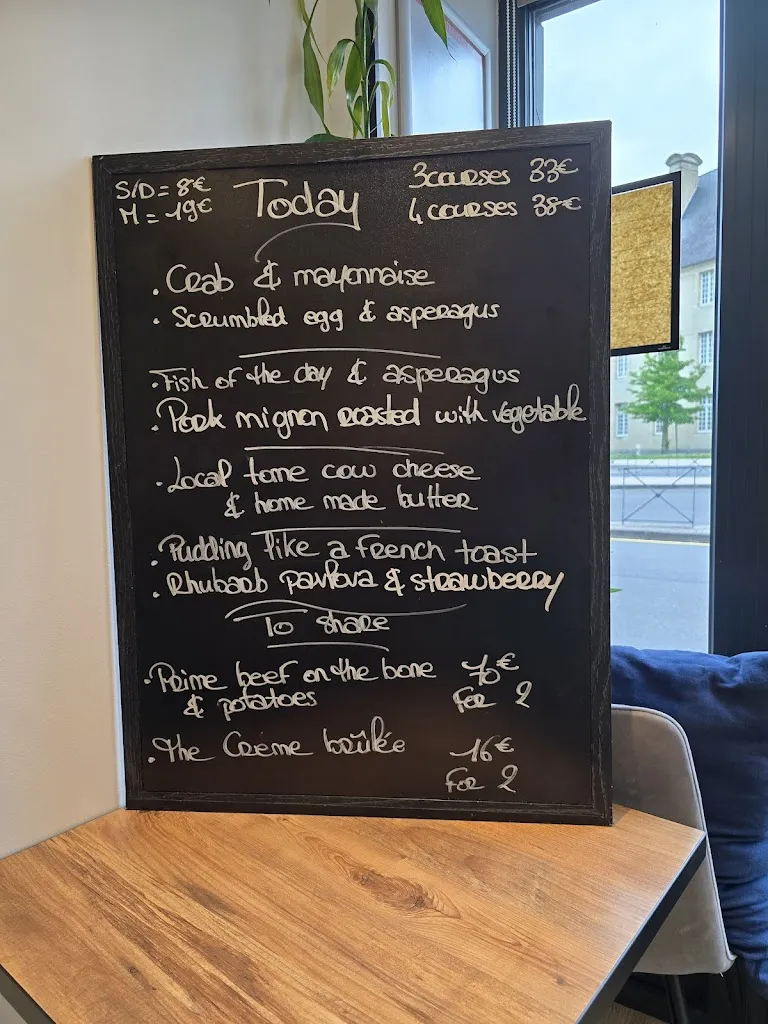 S/D = 8€
M = 19€
Today
3 courses 33€
4 courses 38€
• Crab & mayonnaise
• Scrumbled egg & asperagus
• Fish of the day & asperagus
• Pork mignon roasted with vegetable
• Local tome cow cheese
& home made butter
• Pudding like a French toast
• Rhubarb pavlova & strawberry
To share
• Prime beef on the bone 70€
& potatoes For 2
• The Crème brûlée 16€
For 2